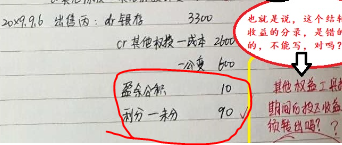 20×9.9.6 出售丙: dr 银存 3300
cr 其他权投—成本 2600
—公变 600
盈余公积 10
利分—未分 90
也就是说，这个结转
收益的分录，是错的
的，不能写，对吗？
其他权益工具
期间的投资收益
须转出吗？？